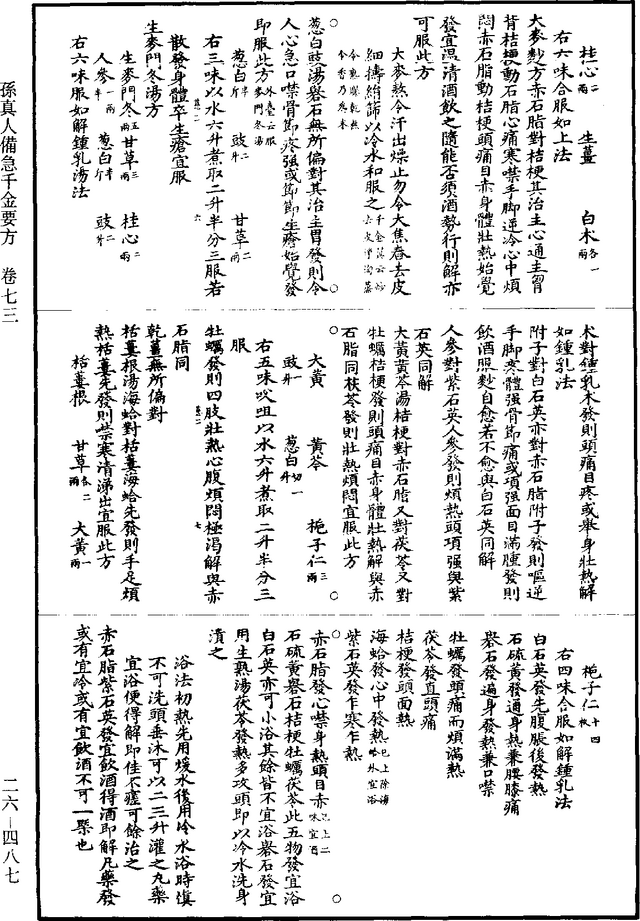 孫真人備急千金要方　卷七三
二六—四八七
桂心二兩　生薑　白朮各一兩
右六味合服如上法
大麥麨方赤石脂對桔梗其治主心通主胷
背桔梗動石脂心痛寒噤手脚逆冷心中煩
悶赤石脂動桔梗頭痛目赤身體壯熱始覺
發宜温清酒飲之隨能否須酒勢行則解亦
可服此方
大麥熬令汗出燥止勿令大焦舂去皮
細擣絹篩以冷水和服之
葱白豉湯礜石無所偏對其治主胃發則令
人心急口噤骨節疼强或節節生瘡始覺發
即服此方
葱白半斤　豉二升　甘草二兩
右三味以水六升煮取二升半分三服若
散發身體卒生瘡宜服
生麥門冬湯方
生麥門冬五兩　甘草三兩　桂心二兩
人參一兩半　葱白半斤　豉二升
右六味服如解鍾乳湯法
朮對鍾乳朮發則頭痛目疼或舉身壯熱解
如鍾乳法
附子對白石英亦對赤石脂附子發則嘔逆
手脚寒體强骨節痛或項强面目滿腫發則
飲酒服麨自愈若不愈與白石英同解
人參對紫石英人參發則煩熱頭項强與紫
石英同解
大黃黃芩湯桔梗對赤石脂又對茯苓又對
牡蠣桔梗發則頭痛目赤身體壯熱解與赤
石脂同茯苓發則壯熱煩悶宜服此方
大黃　黃芩　梔子仁三兩
豉一升　葱白切一升
右五味㕮咀以水六升煮取二升半分三
服
牡蠣發則四肢壯熱心腹煩悶極渴解與赤
石脂同
乾薑無所偏對
栝蔞根湯海蛤對栝蔞海蛤先發則手足煩
熱栝蔞先發則噤寒清涕出宜服此方
栝蔞根　甘草各二兩　大黃一兩
梔子仁十四枚
右四味合服如解鍾乳法
白石英發先腹脹後發熱
石硫黃發通身熱兼腰膝痛
礜石發遍身發熱兼口噤
牡蠣發頭痛而煩滿熱
茯苓發直頭痛
桔梗發頭面熱
海蛤發心中發熱
紫石英發乍寒乍熱
赤石脂發心噤身熱頭目赤
石硫黃礜石桔梗牡蠣茯苓此五物發宜浴
白石英亦可小浴其餘皆不宜浴礜石發宜
用生熟湯茯苓發熱多攻頭即以冷水洗身
漬之
浴法初熱先用煖水後用冷水浴時慎
不可洗頭垂沐可以二三升灌之凡藥
宜浴便得解即佳不瘥可餘治之
赤石脂紫石英發宜飲酒得酒即解凡藥發
或有宜冷或有宜飲酒不可一槩也